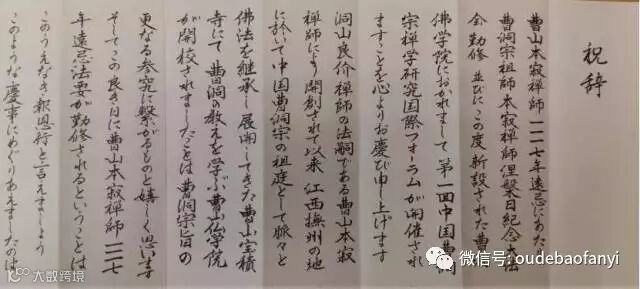 祝辞
曹山本寂禅師一一二七年遠忌にあた
曹洞宗祖師本寂禅師涅槃日紀念法
会勤修 並びにこの度 新設された曹
佛学院におかれまして 第一回中国曹洞
宗禅学研究国際フォーラムが開催され
ますことを心よりお慶び申し上げます
洞山良价禅師の法嗣である曹山本寂
禅師により開創されて以来 江西撫州の地
に於いて中国曹洞宗の祖庭として脈々と
佛法を継承し展開してきた曹山宝積
寺にて 曹洞の教えを学ぶ曹山仏学院
が開校されましたことは 曹洞宗旨の
更なる参究に繋がるものと嬉しく思います
そしてこの良き日に曹山本寂禅師一一二七
年遠忌法要が勤修されるということは
このうえなき報恩行と言えましょう
このような慶事にめぐりあえましたのは
微信号: oudebaofanyi
大数跨境